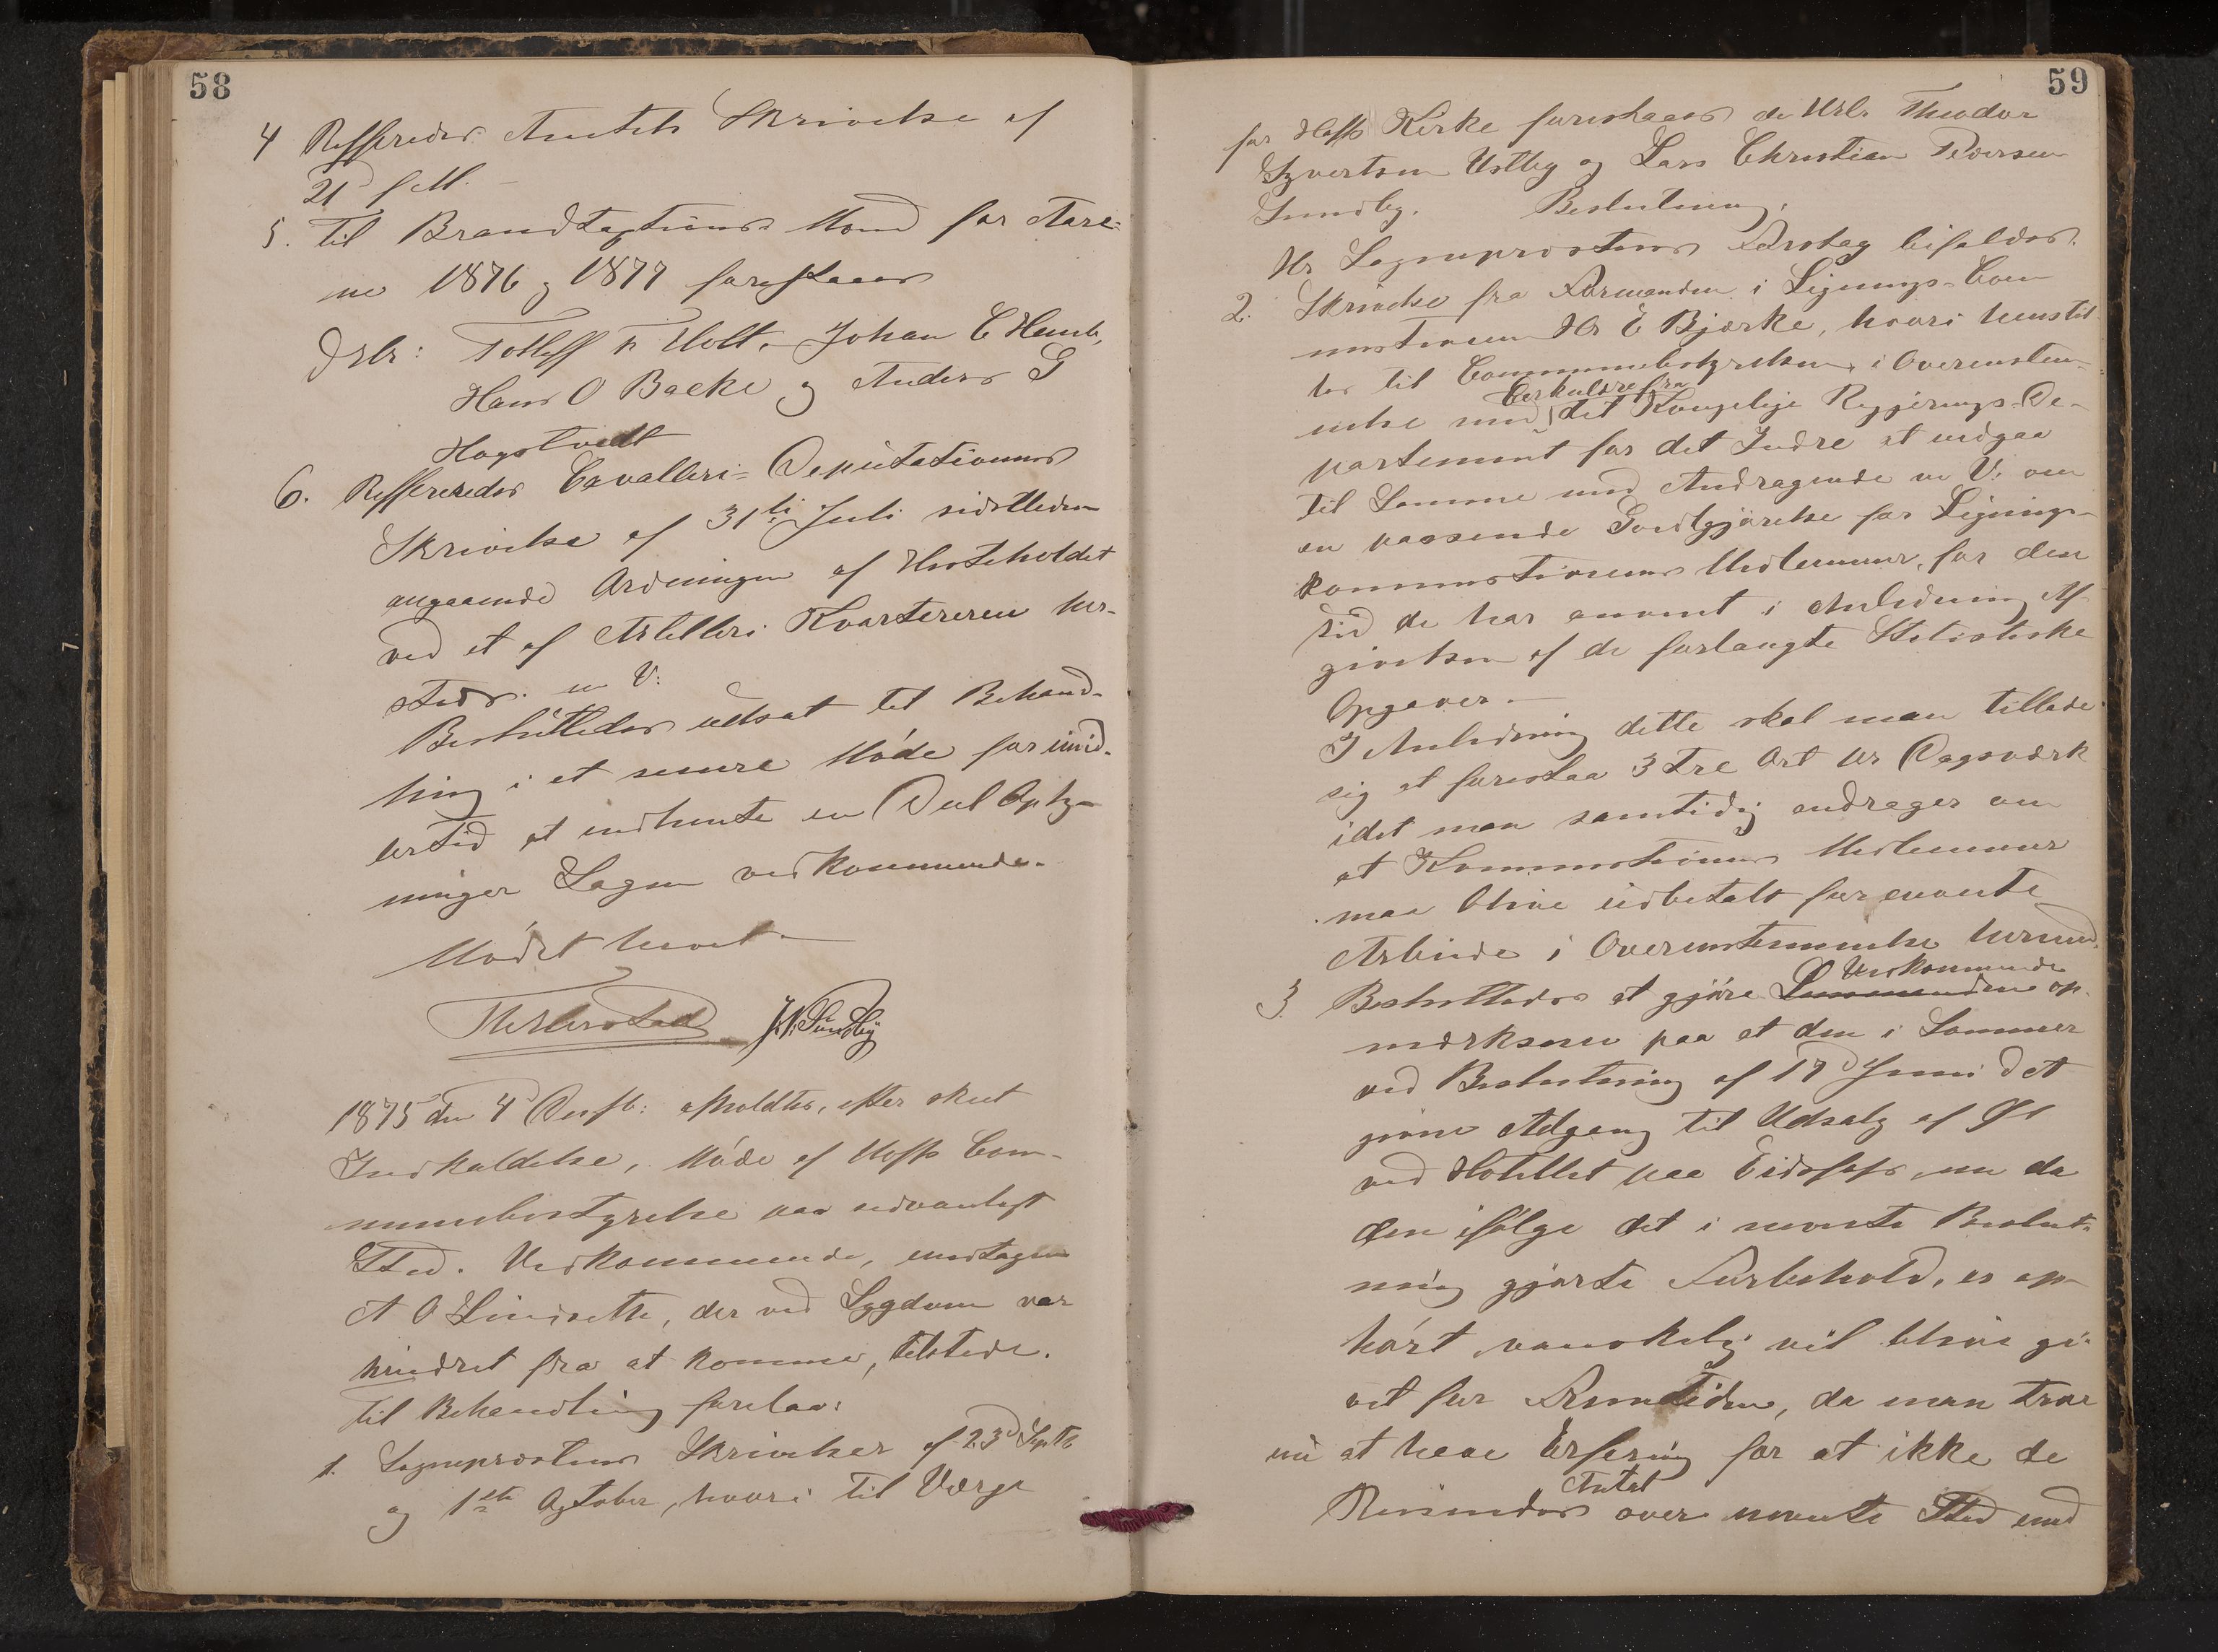 58
4 Reffereredes Amtets Skrivelse af
21 f. M.
5. Til Brandtaxtions Mænd for Aare-
ne 1876 og 1877 foreslaaes
Drhr: Tolleff F Holt, Johan C Hemb,
Hans O Bække og Anders G
Hagstvedt
6. Reffereredes Cavalleri-Deputationens
Skrivelse af 31te Juli sidstleden
angaaende Ordningen af Hesteholdet
ved et af Artilleri Kvartererne her-
steds. m V:
Besluttedes udsat til Behand-
ling i et senere Møde for imid-
lertid at indhente en Deel Oplys-
ninger Sagen vedkommende.
Mødet hævet.
J. N. Sundby
1875 den 4d Desbr: afholdtes, efter skeet
Indkaldelse, Møde af Hoffs Com-
munebestyrelse paa sedvanligt
Sted. Vedkommende, undtagen
A O Lindsette, der ved Sygdom var
hindret fra at komme, tilstede.
Til Behandling forelaa:
1. Sogneprestens Skrivelser af 23d Septb
og 1ste October, hvori til Værge
59
for Hoffs Kirke foreslaaes de Hrr. Theodor
Syvertsen Ustby og Lars Christian Pedersen
Sundby. Beslutning.
Hr Sogneprestens Forslag bifaldes.
2. Skrivelse fra Formanden i Lignings-Com
missionen Hr E Bjørke, hvori henstil-
les til Communebestyrelsen, i Overensstem-
melse med Cirkulære fra det Kongelige Regjerings-De-
partement for det Indre at indgaa
til Samme med Andragende m V: om
en passende Godtgjørelse for Lignings-
kommissionens Medlemmer, for den
Tid de har anvent i Anledning Af-
givelsen af de forlangte Statistiske
Opgaver.
I Anledning dette skal man tillade
sig at foreslaa 3 tre Ort pr Dagsværk
idet man samtidig andrager om
at Kommissionens Medlemmer
maa blive udbetalt for nævnte
Arbeide i Overensstemmelse hermed.
3. Besluttedes at gjøre Vedkommende op-
mærksom paa at den i Sommer
ved Beslutning af 17d Juni d A
givne Adgang til Udsalg af Øl
ved Hotellet paa Eidsfos, nu da
den ifølge det i nævnte Beslut-
ning gjorte Forbehold, er op-
hørt vanskelig vil blive gi-
vet for Fremtiden, da man tror
nu at have Erfaring for at ikke de
Reisendes Antal over nævnte Sted med